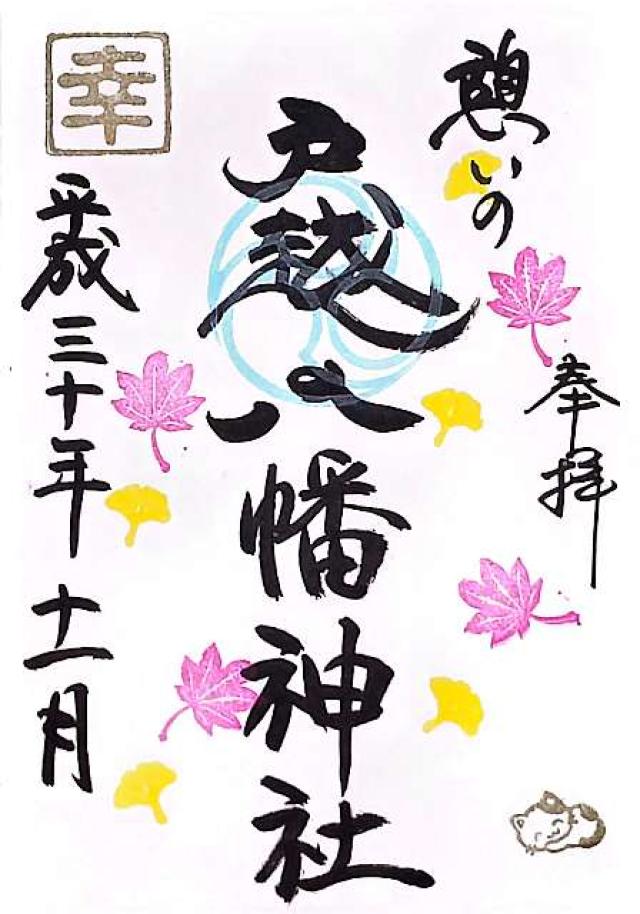 憩いの
奉拝
戸越八幡神社
平成三十年十一月
幸